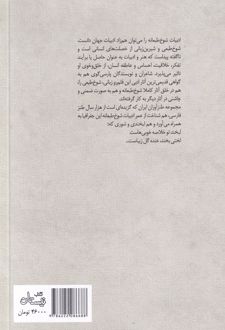 ادبیات شوخ‌طبعانه را می‌توان همزاد ادبیات جهان دانست.
شوخ‌طبعی و شیرین‌زبانی از خصلت‌های انسانی است و
ناگفته پیداست که هنر و ادبیات به عنوان حاصل یا برآیند
تفکر، خلاقیت، احساس و عاطفه انسان، از خلق‌وخوی او
تاثیر می‌پذیرد. شاعران و نویسندگان پارسی‌گوی هم به
گواهی قدیمی‌ترین آثار ادبی این قلم‌رو زبانی، شوخ‌طبعی را،
هم در خلق آثار کاملا شوخ‌طبعانه و هم به صورت ضمنی و
چاشنی در آثار دیگر به کار گرفته‌اند.
مجموعه طنزآوران ایران که گزیده‌ای است از هزار سال طنز
فارسی، هم شناخت از عمر ادبیات شوخ‌طبعانه این جغرافیا به
همراه می‌آورد و هم لبخندی و شوری که:
لبخند تو خلاصه خوبی‌هاست
لختی بخند، خنده گل زیباست.
کتاب
نیستان
۴۶۰۰۰ تومان